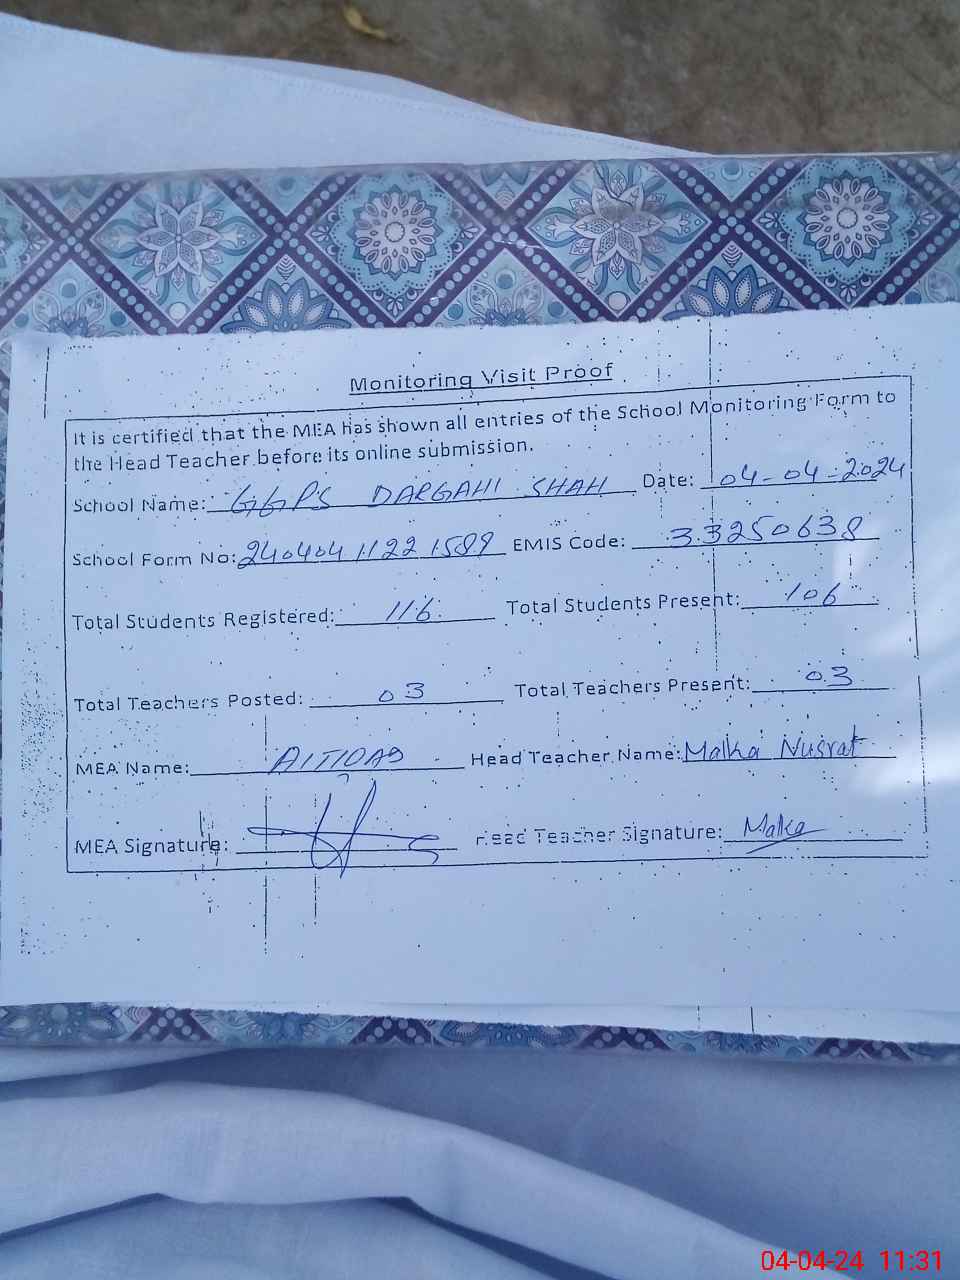 Monitoring Visit Proof
It is certified that the MEA has shown all entries of the School Monitoring Form to
the Head Teacher before its online submission.
School Name: GGPS DARGAHI SHAH Date: 04-04-2024
School Form No: 24040411221589 EMIS Code: 33250638
Total Students Registered: 116 Total Students Present: 106
Total Teachers Posted: 03 Total Teachers Present: 03
MEA Name: Head Teacher Name: Malka Nusrat
MEA Signature: Head Teacher Signature: Malka
04-04-24 11:31